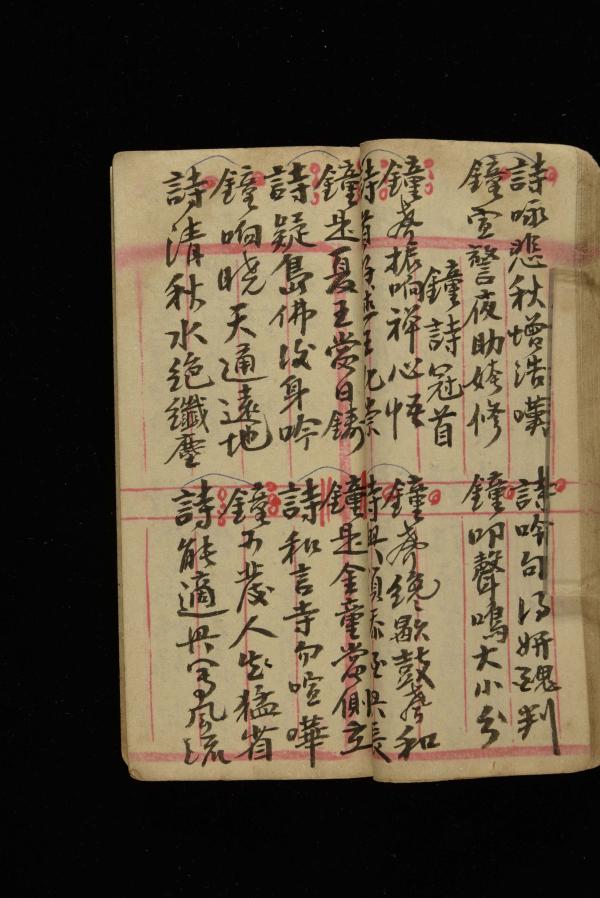 詩咏悲秋增浩嘆
鐘宣警夜助修
鐘詩冠首
鐘聲振响禅心悟
詩首
鐘是夏王當日鑄
詩疑島佛後身吟
鐘响曉天通遠地
詩清秋水絕纖塵
詩吟句得妍醜判
鐘叩聲鳴大小分
鐘聲纔歇鼓聲和
詩興頻添酒興長
鐘是金童當側立
詩和言寺勿喧嘩
鐘可發人生猛省
詩能適興寫風流